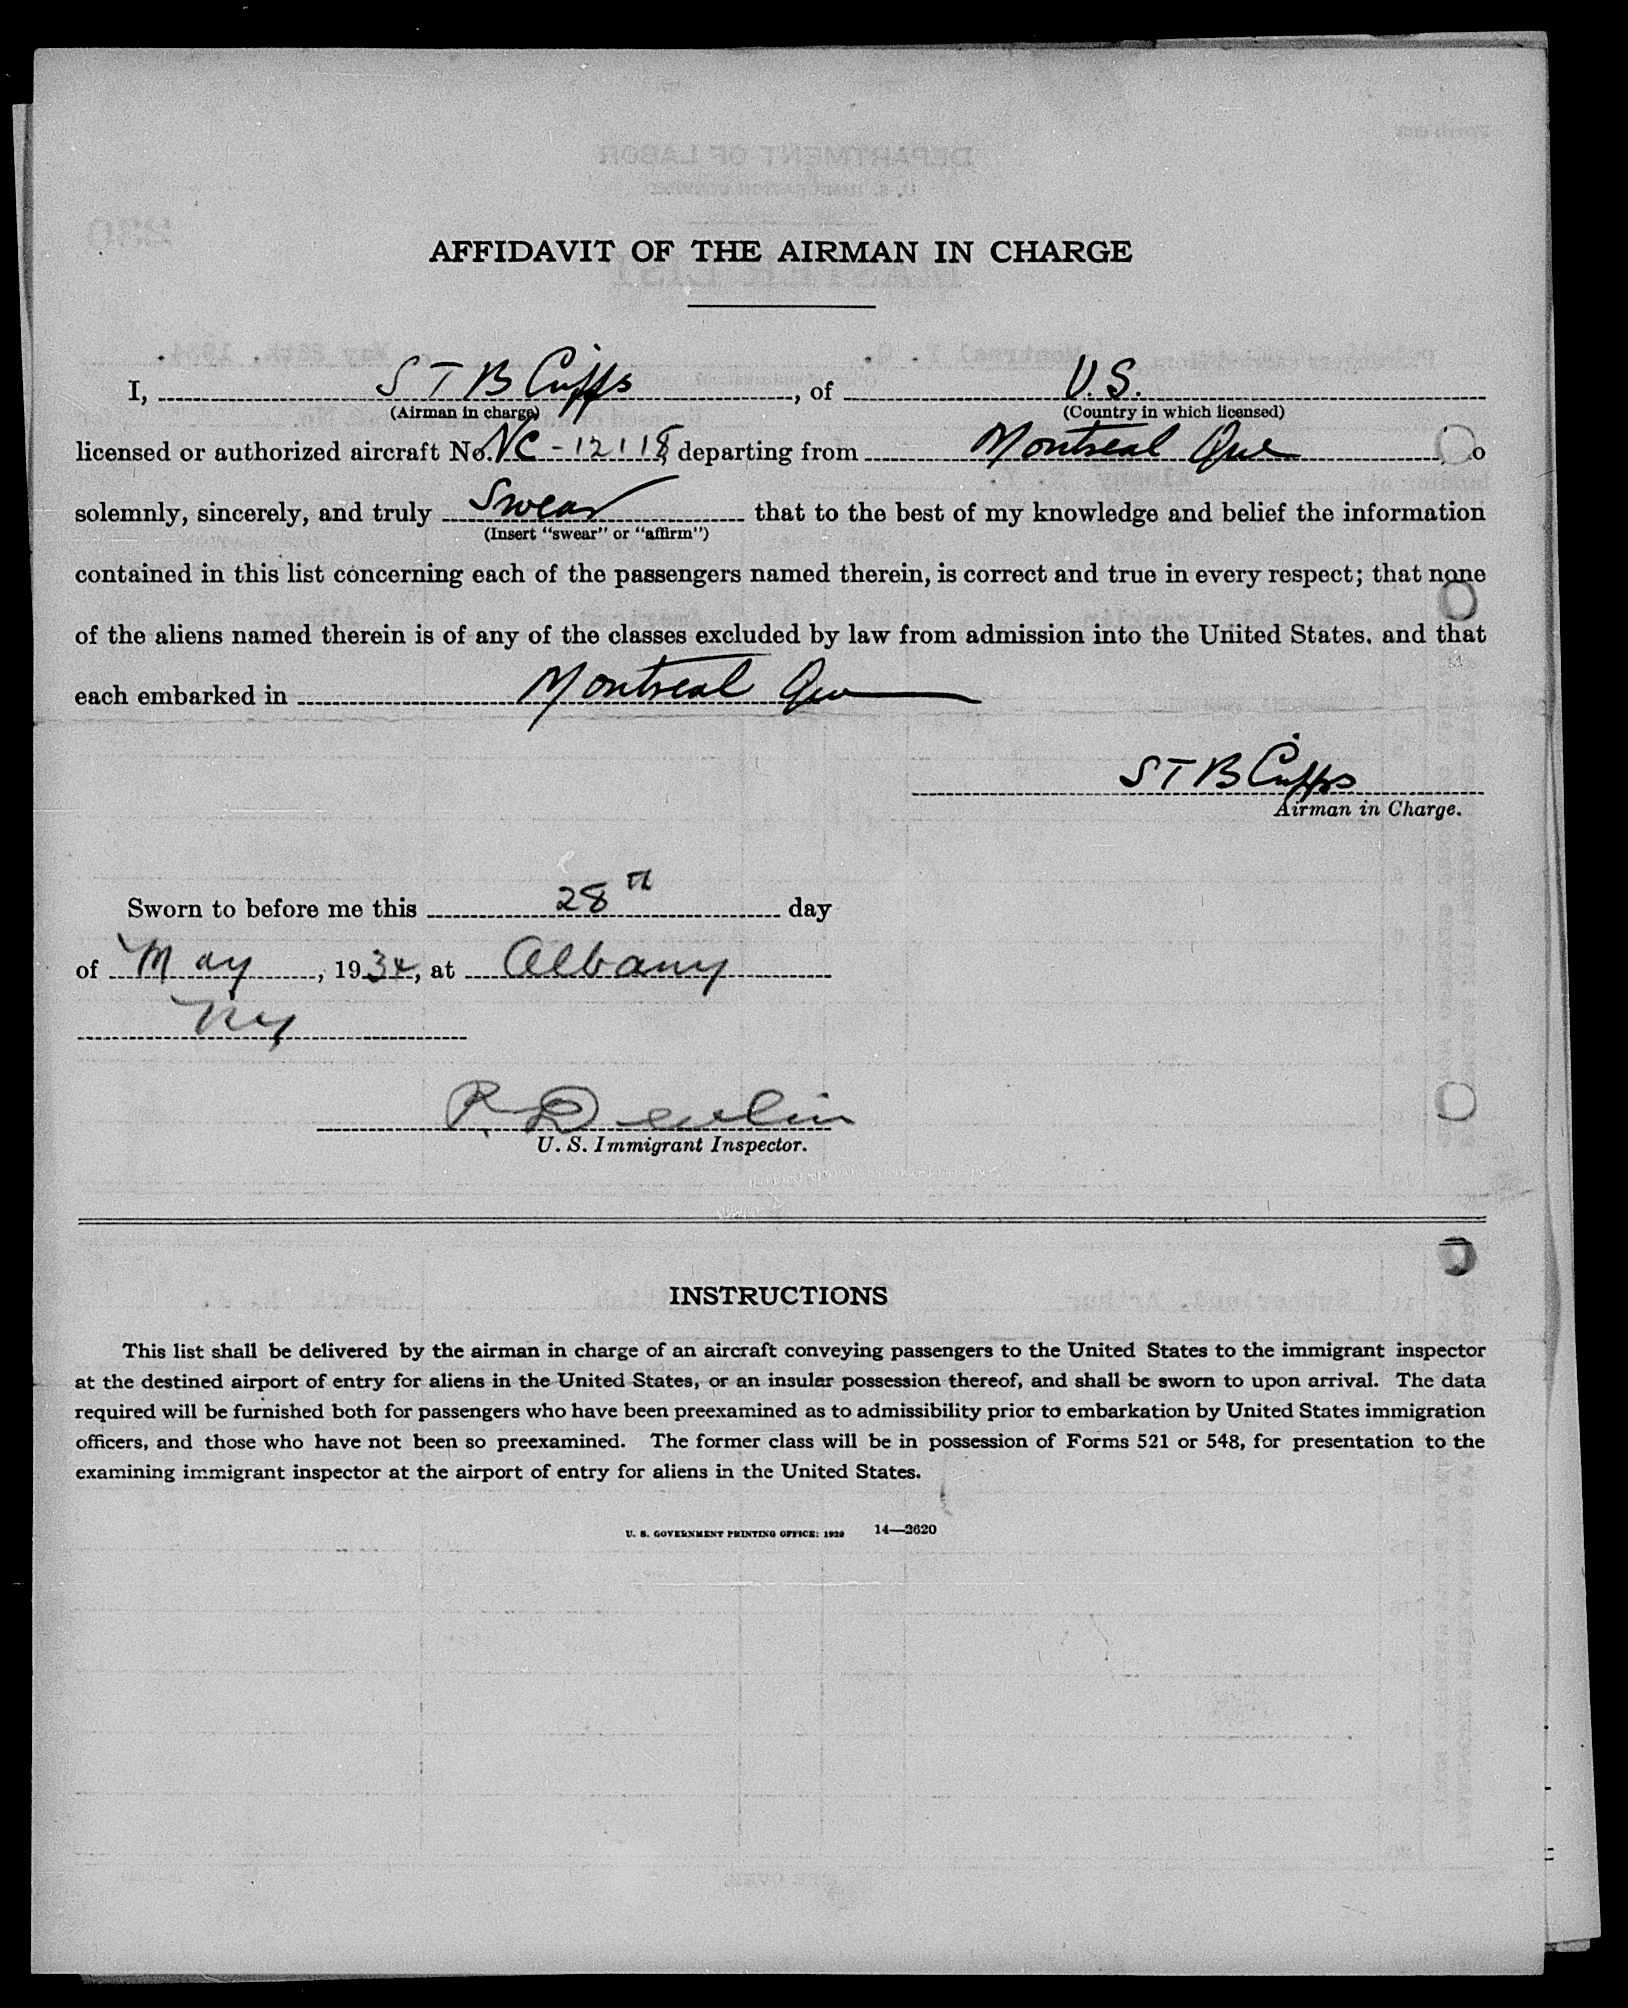 AFFIDAVIT OF THE AIRMAN IN CHARGE
I, S T B Cripps, of U.S.
(Airman in charge) (Country in which licensed)
licensed or authorized aircraft No. NC-12118 departing from Montreal Que o
solemnly, sincerely, and truly Swear that to the best of my knowledge and belief the information
(Insert "swear" or "affirm")
contained in this list concerning each of the passengers named therein, is correct and true in every respect; that none
of the aliens named therein is of any of the classes excluded by law from admission into the United States, and that
each embarked in Montreal Que
S T B Cripps
Airman in Charge.
Sworn to before me this 28th day
of May, 1934, at Albany
NY
R Devlin
U. S. Immigrant Inspector.
INSTRUCTIONS
This list shall be delivered by the airman in charge of an aircraft conveying passengers to the United States to the immigrant inspector
at the destined airport of entry for aliens in the United States, or an insular possession thereof, and shall be sworn to upon arrival. The data
required will be furnished both for passengers who have been preexamined as to admissibility prior to embarkation by United States immigration
officers, and those who have not been so preexamined. The former class will be in possession of Forms 521 or 548, for presentation to the
examining immigrant inspector at the airport of entry for aliens in the United States.
U. S. GOVERNMENT PRINTING OFFICE: 1929 14—3620